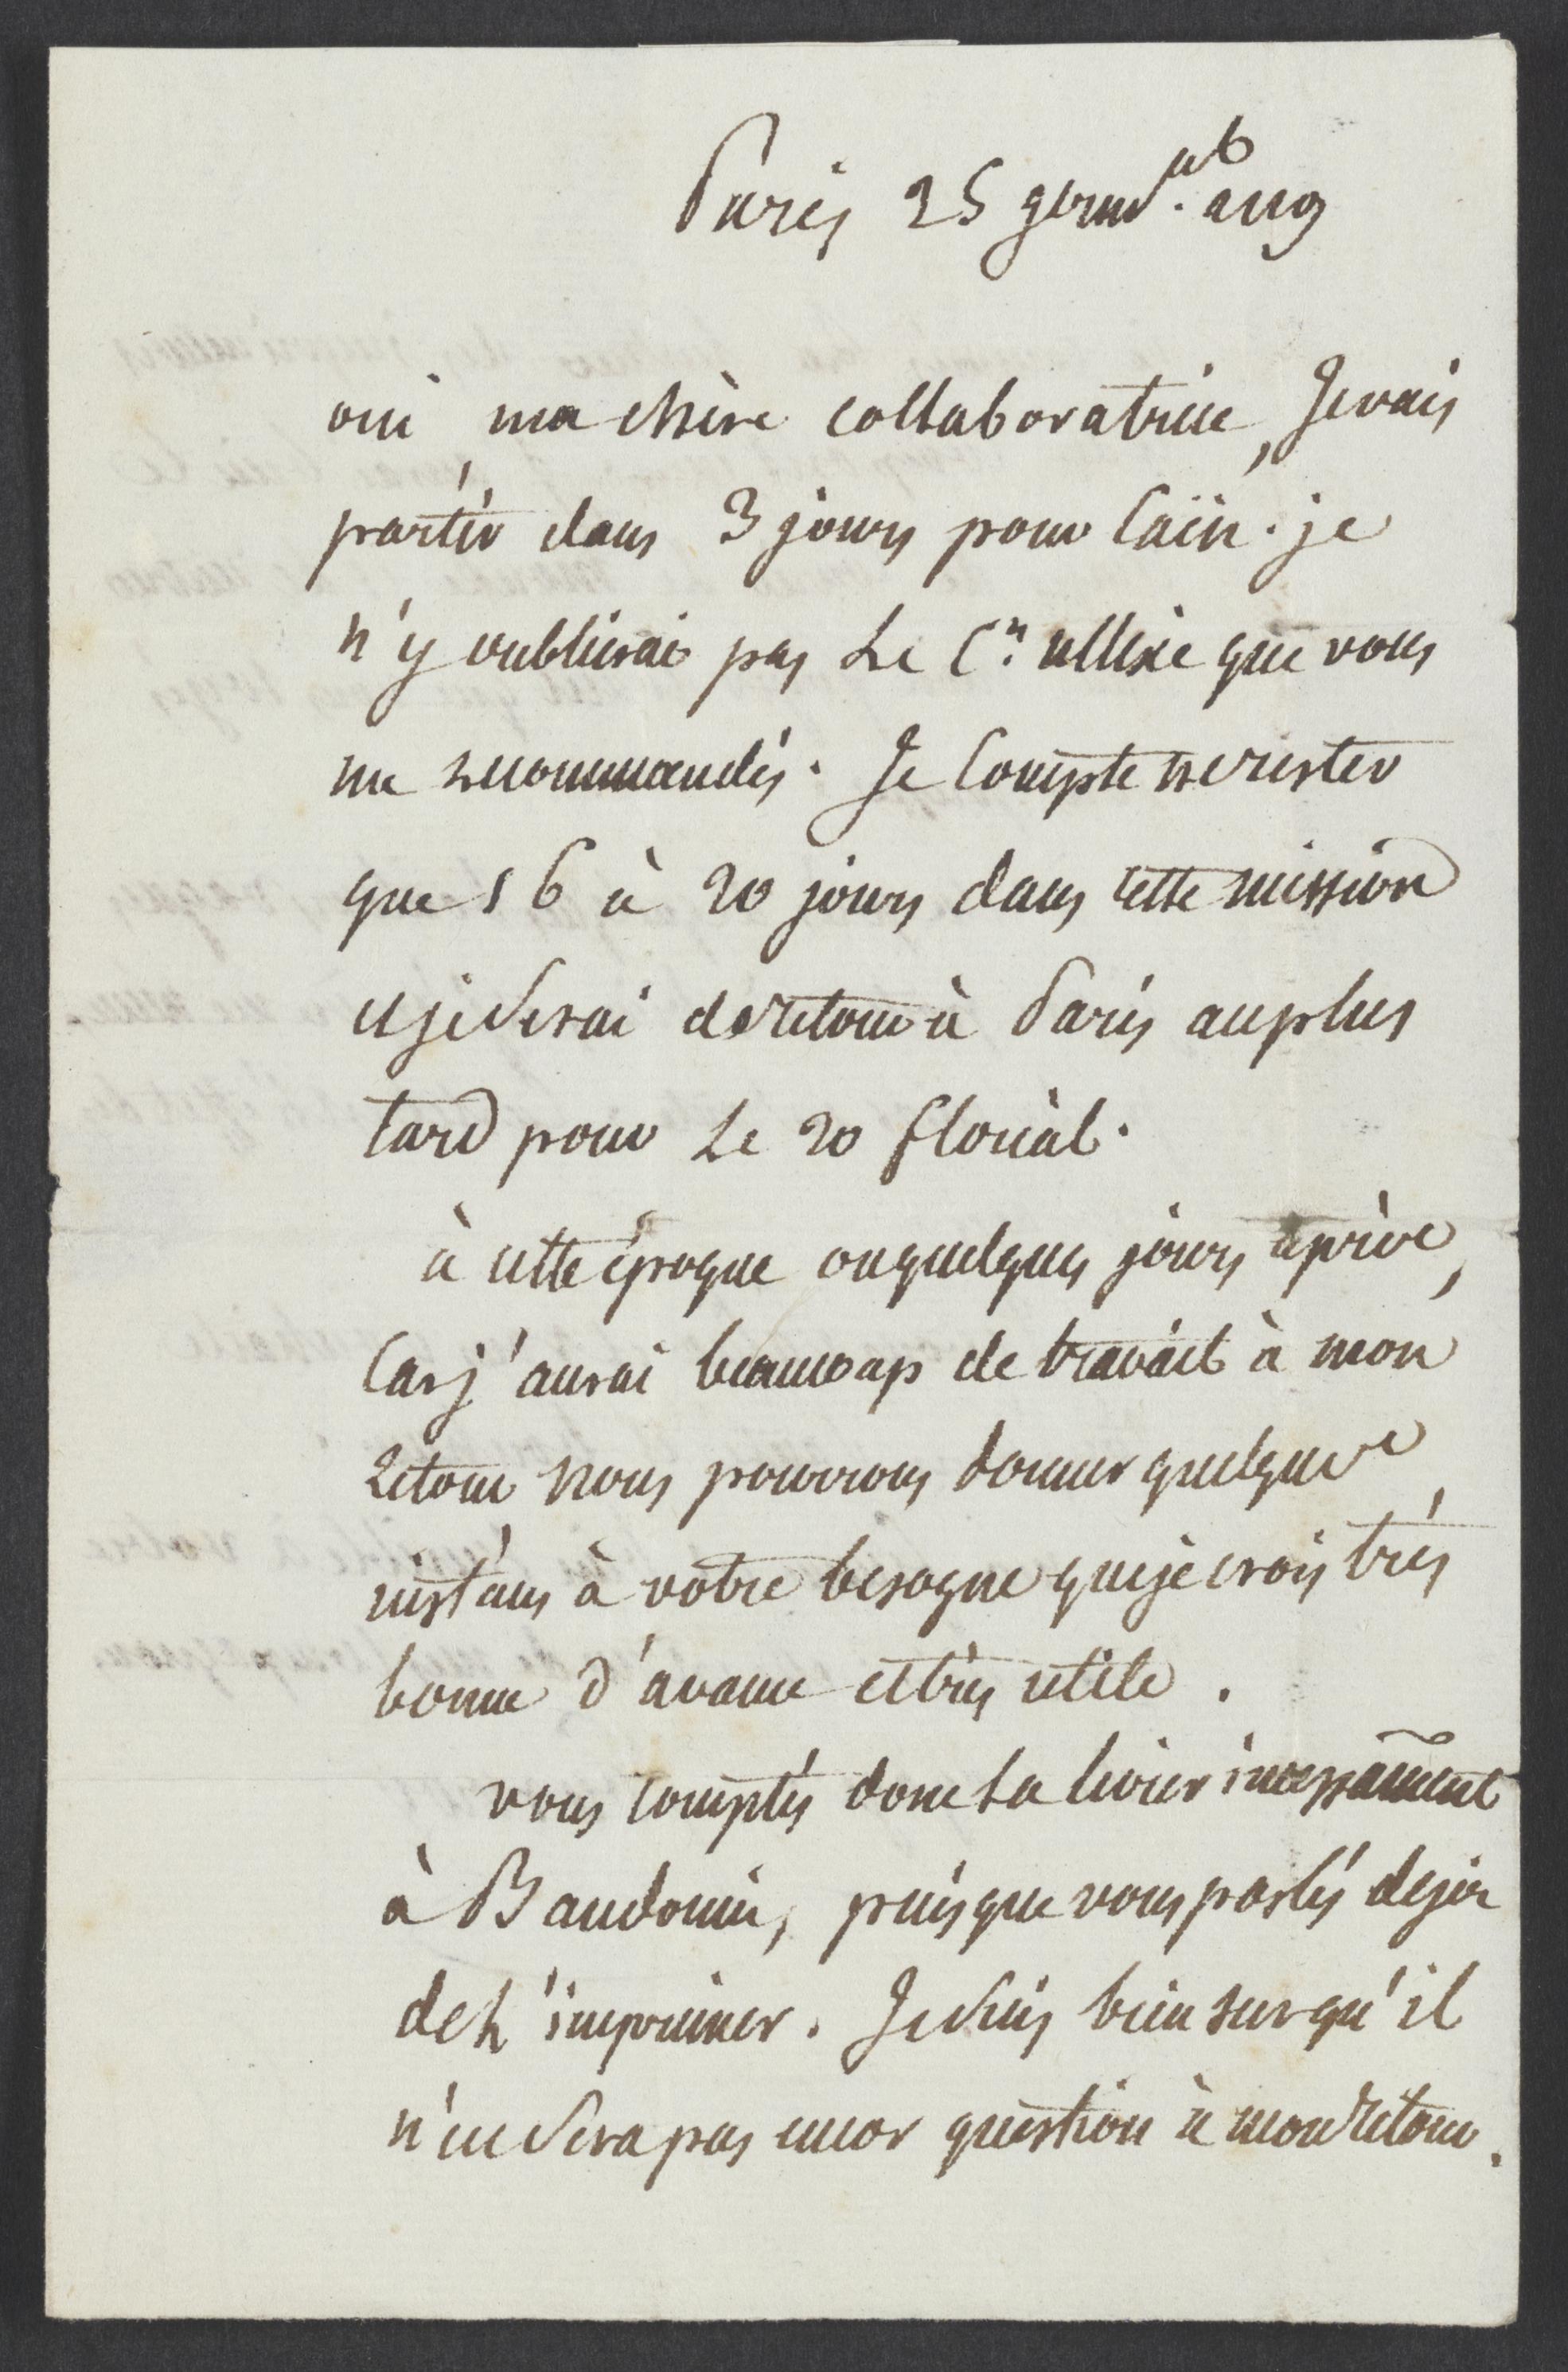 Paris 25 germ.al an 9
oui, ma chère collaboratrice, Je vais
partir dans 3 jours pour Caën. je
n'y oublierai pas Le Cn. que vous
me recommandés. Je Compte ne rester
que 16 à 20 jours dans cette mission
et je serai de retour à Paris au plus
tard pour Le 20 floréal.
à cette époque ou quelques jours après,
Car j'aurai beaucoup de travail à mon
retour nous pourrons donner quelques
instans à votre besogne que je crois très
bonne d'avance et très utile.
vous comptés donc La livrer incessament
à Baudouin, puisque vous parlés deja
de L'imprimer. Je suis bien sur qu'il
n'en sera pas encor question à mon retour.